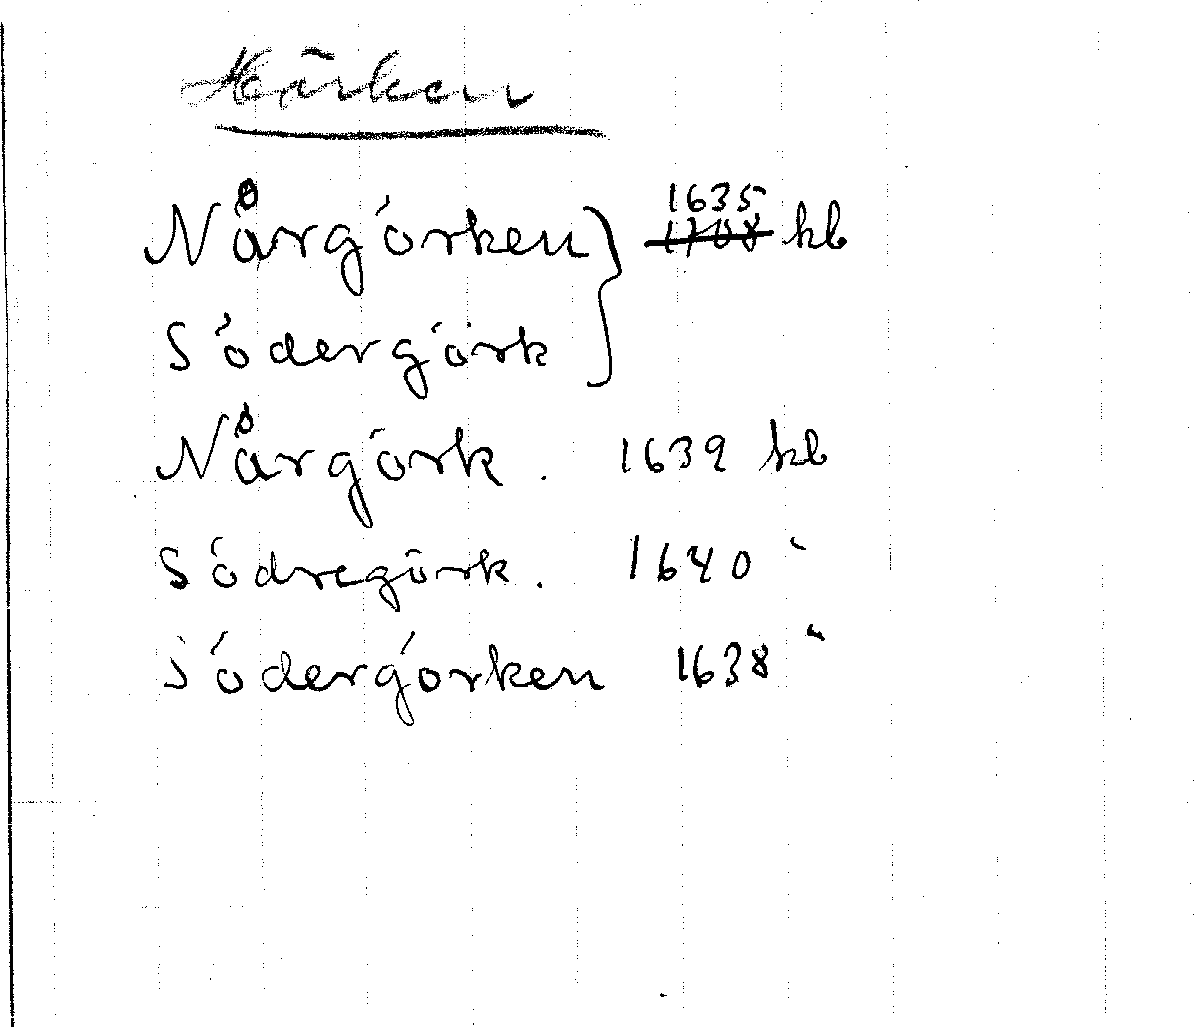 Härken
Nårgörken } 1635 1708 kb
Södergörk
Nårgörk. 1639 kb
Södregörk. 1640 "
Södergörken 1638 "